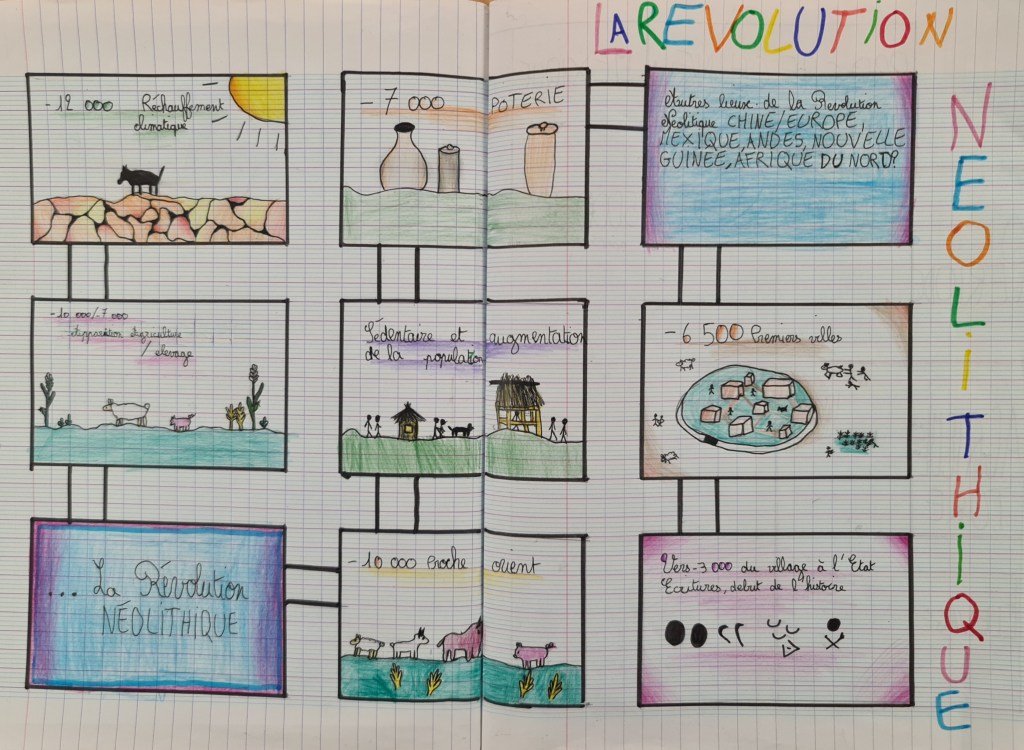 LA REVOLUTION
NEOLITHIQUE
-12 000 Réchauffement
climatique
-10 000/-7 000
Apparition Agriculture
/ élevage
... La Révolution
NÉOLITHIQUE
-10 000 Proche orient
Sédentaire et augmentation
de la population
-7 000 POTERIE
Autres lieux de la Revolution
Néolitique CHINE/EUROPE,
MEXIQUE, ANDES, NOUVELLE
GUINEE, AFRIQUE DU NORD?
-6 500 Premiers villes
Vers -3 000 du village à l'Etat
Ecritures, debut de l'histoire